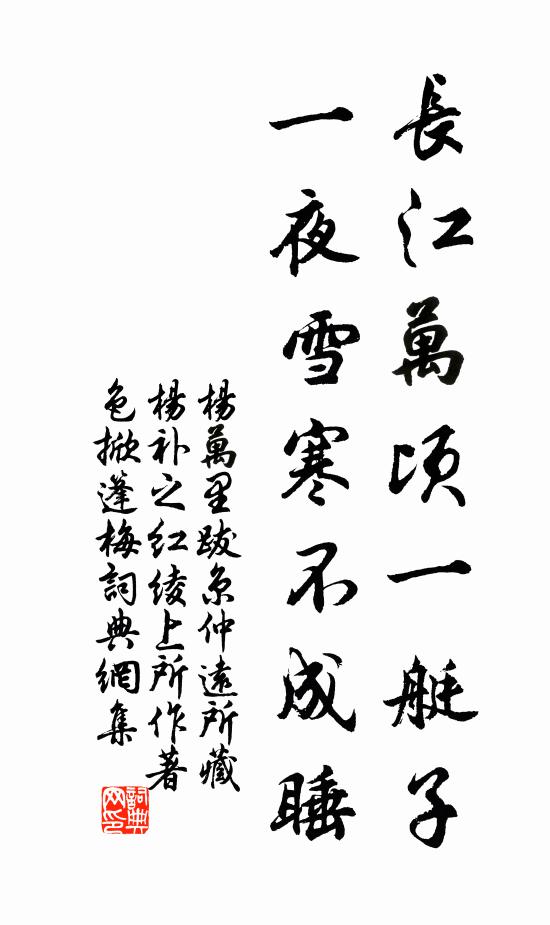 長江萬頃一艇子
一夜雪寒不成睡
楊萬里跋京仲遠所藏
楊补之红绫上所作著
色掀蓬梅詞典網集
詞典
网印